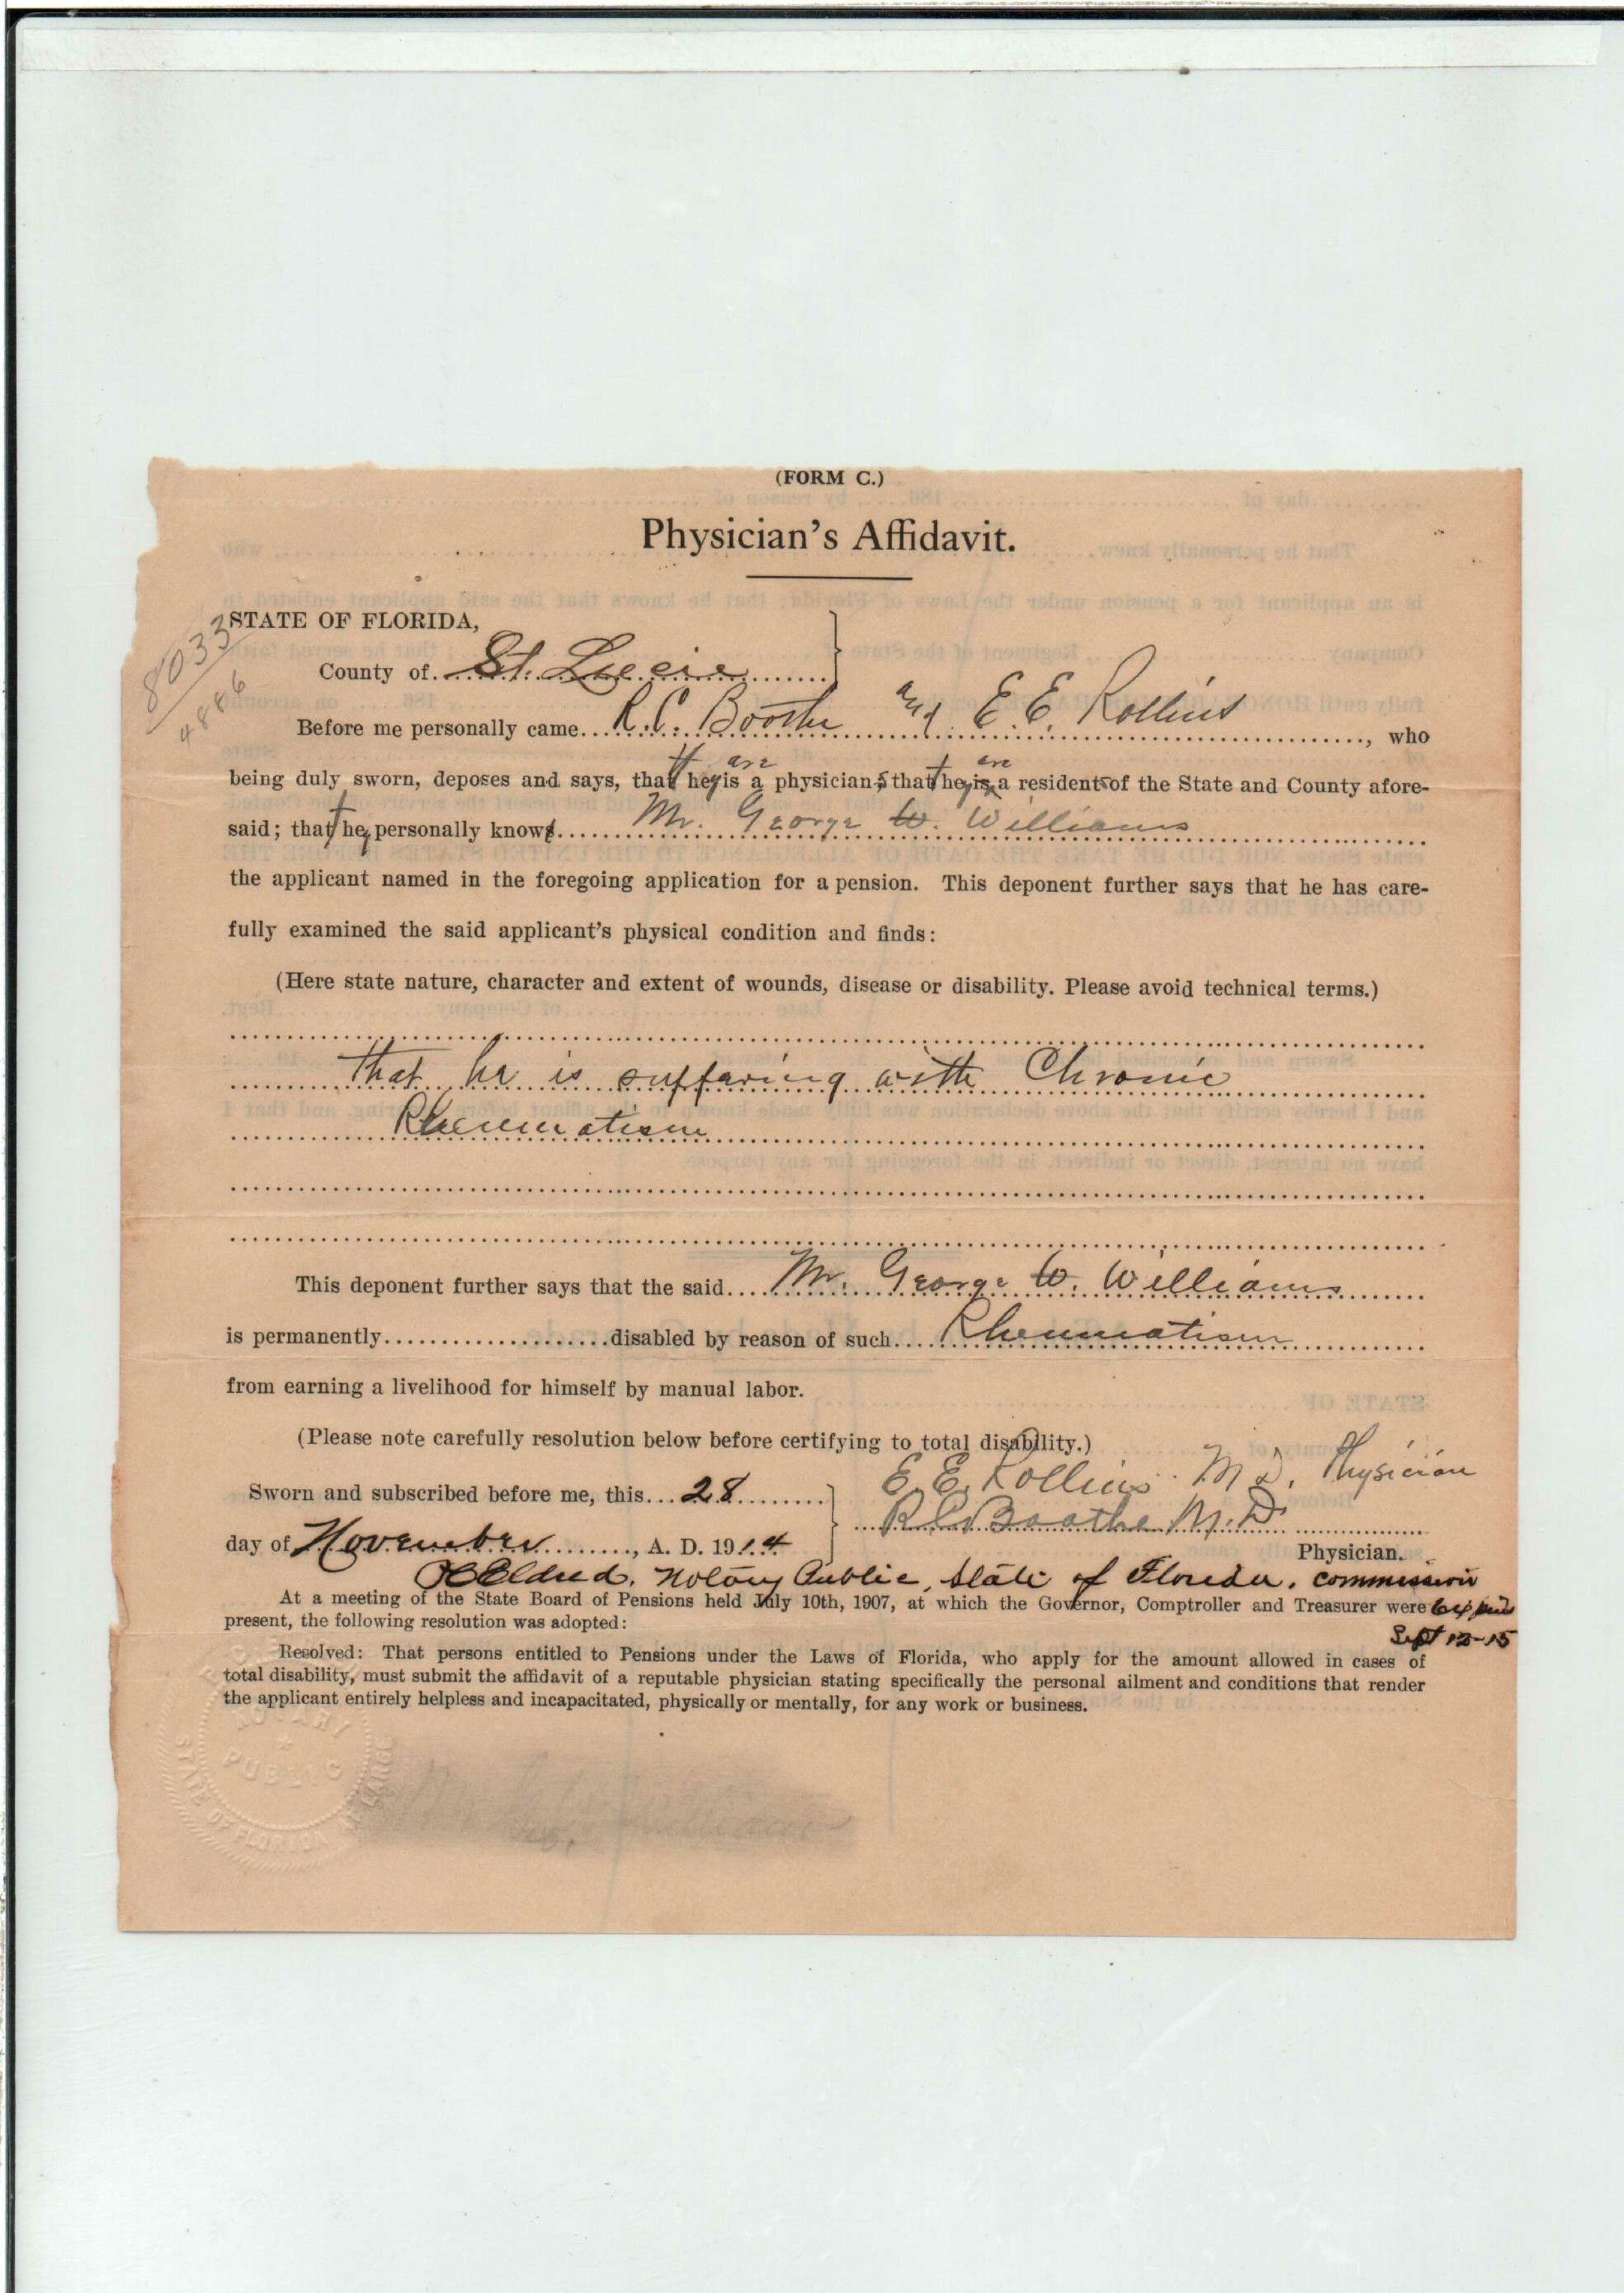 (FORM C.)
Physician's Affidavit.
8033
4886
STATE OF FLORIDA,
County of St. Lucie
Before me personally came R.C. Boothe and E. E. Rollins, who
being duly sworn, deposes and says, that they are a physicians that they are a residents of the State and County afore-
said; that they personally know Mr. George W. Williams
the applicant named in the foregoing application for a pension. This deponent further says that he has care-
fully examined the said applicant's physical condition and finds:
(Here state nature, character and extent of wounds, disease or disability. Please avoid technical terms.)
that he is suffering with Chronic
Rheumatism
This deponent further says that the said Mr. George W. Williams
is permanently disabled by reason of such Rheumatism
from earning a livelihood for himself by manual labor.
(Please note carefully resolution below before certifying to total disability.)
E. E. Rollins M.D. Physician
Sworn and subscribed before me, this 28
R C Boothe M.D.
day of November, A. D. 1914
Physician.
Eldred, Notary Public, State of Florida, commission
expires
Sept 12-15
At a meeting of the State Board of Pensions held July 10th, 1907, at which the Governor, Comptroller and Treasurer were
present, the following resolution was adopted:
Resolved: That persons entitled to Pensions under the Laws of Florida, who apply for the amount allowed in cases of
total disability, must submit the affidavit of a reputable physician stating specifically the personal ailment and conditions that render
the applicant entirely helpless and incapacitated, physically or mentally, for any work or business.
NOTARY
PUBLIC
STATE OF FLORIDA AT LARGE